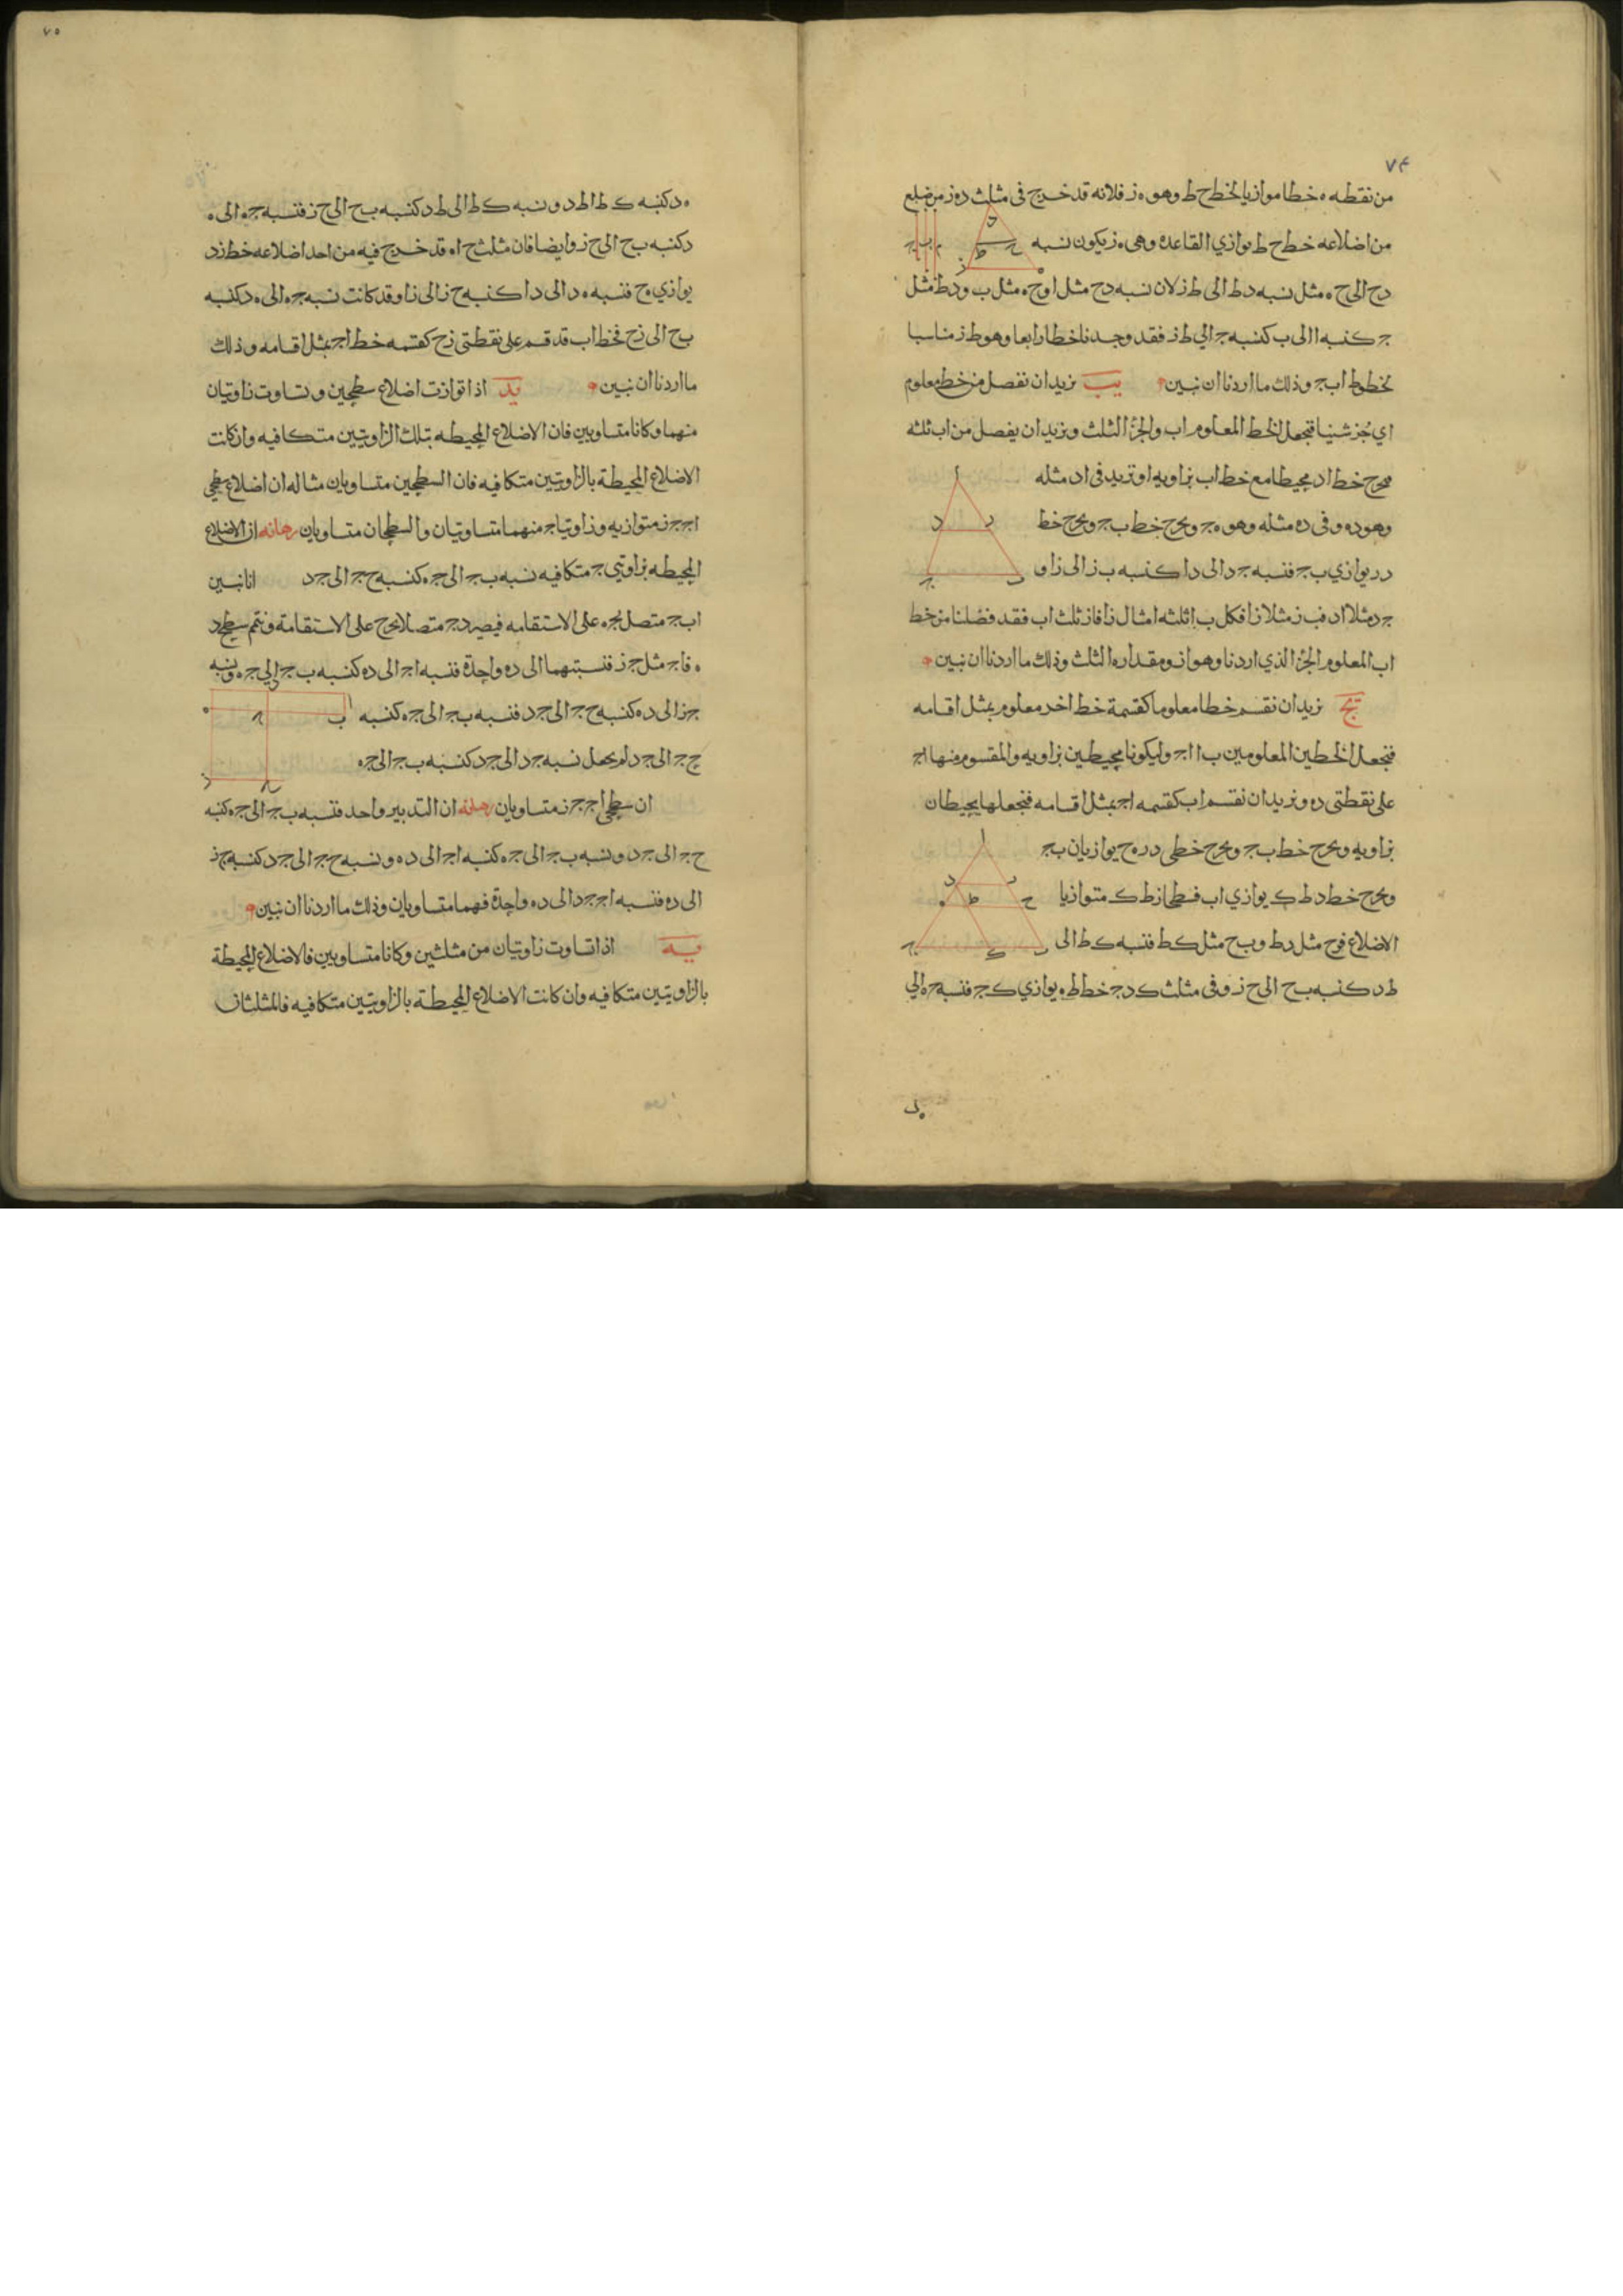 ٧۴
من نقطه ه خطا موازيا لخط ح ط وهو ه ز فلانه قد خرج فى مثلث د ه ز من ضلع
من اضلاعه خط ح ط يوازي القاعدة وهى ه ز يكون نسبه
د ح الى ح ه مثل نسبه د ط الى ط ز لان نسبه د ح مثل ا و ح ه مثل ب و د ط مثل
ج كنسبه ا الى ب كنسبه ج الي ط ز فقد وجدنا خطا رابعا وهو ط ز مناسبا
لخطوط ا ب ج وذلك ما اردنا ان نبين يب نريد ان نفصل من خط معلوم
اي جز شينا فنجعل الخط المعلوم ا ب والجزُ الثلث ونريد ان يفصل من ا ب ثلثه
فنخرج خط ا د محيطا مع خط ا ب بزاويه ا ونزيد فى ا د مثله
وهو د ه وفى د ه مثله وهو ه ج ونخرج خط ب ج ونخرج خط
د ر يوازي ب ج فنسبه ج د الى د ا كنسبه ب ز الى ز ا و
ج د مثلا ا د ف ب ز مثلا ز ا فكل ب ا ثلثه امثال ز ا فا ز ثلث ا ب فقد فصلنا من خط
ا ب المعلوم الجزُ الذي اردنا وهو ا ز ومقداره الثلث وذلك ما اردنا ان نبين
يج نريد ان نقسم خطا معلوما كقسمة خط اخر معلوم بمثل اقسامه
فنجعل الخطين المعلومين ب ا ا ج وليكونا محيطين بزاويه والمقسوم منها ا ج
على نقطتى د ه ونريد ان نقسم ا ب كقسمه ا ج بمثل اقسامه فنجعلها يحيطان
بزاويه ونخرج خط ب ج ونخرج خطى د ر ه ح يوازيان ب ج
ونخرج خط د ط ك يوازي ا ب فسطحا ز ط ك متوازيا
الاضلاع فز ح مثل د ط و ب ح مثل ك ط فنسبه ك ط الى
ط د كنسبه ب ح الى ح ز وفى مثلث ك د ج خط ط ه يوازي ك ج فنسبه ج ه الي
٧٥
ه د كنسبه ك ط الى ط د ونسبه ك ط الى ط د كنسبه ب ح الى ح ز فنسبه ج ه الى ه
د كنسبه ب ح الى ح ز وايضا فان مثلث ح ا ه قد خرج فيه من احد اضلاعه خط ز د
يوازي ه ح فنسبه ه د الى د ا كنسبه ح ز الى ز ا وقد كانت نسبه ج ه الى ه د كنسبه
ب ح الى ز ح فخط ا ب قد قسم على نقطتى ز ح كقسمه خط ا ج بمثل اقسامه وذلك
ما اردنا ان نبين يد اذا توازت اضلاع سطحين وتساوت زاويتان
منهما وكانا متساويين فان الاضلاع المحيطه بتلك الزاويتين متكافيه وان كانت
الاضلاع المحيطة بالزاويتين متكافيه فان السطحين متساويان مثاله ان اضلاع سطحى
ا ج ج ز متوازيه وزاويتا ج منهما متساويتان والسطحان متساويان برهانه ان الاضلاع
المحيطه بزاويتى ج متكافيه نسبه ب ج الى ج ه كنسبه ح ج الى ج د انا نبين
ا ب ج متصل بج ه على الاستقامه فيصير د ج متصلا بج ح على الاستقامة ونتم سطح د
ه فا ج مثل ج ز فنسبتهما الى د ه واحدة فنسبه ا ج الى د ه كنسبه ب ج الي ج ه ونسبه
ج ز الى د ه كنسبه ح ج الى ج د فنسبه ب ج الى ج ه كنسبه
ح ج الى ج د وليجعل نسبه ج د الى ج د كنسبه ب ج الى ج ه
ان سطحى ا ج ج ز متساويان برهانه ان التدبير واحد فنسبه ب ج الى ج ه كنسبه
ح ج الى ج د ونسبه ب ج الى ج ه كنسبه ا ج الى د ه ونسبه ح ج الى ج د كنسبه ج ز
الى د ه فنسبه ا ج ج د الى د ه واحدة فهما متساويان وذلك ما اردنا ان نبين
يه اذا تساوت زاويتان من مثلثين وكانا متساويين فالاضلاع المحيطة
بالزاويتين متكافيه وان كانت الاضلاع المحيطة بالزاويتين متكافيه فالمثلثان